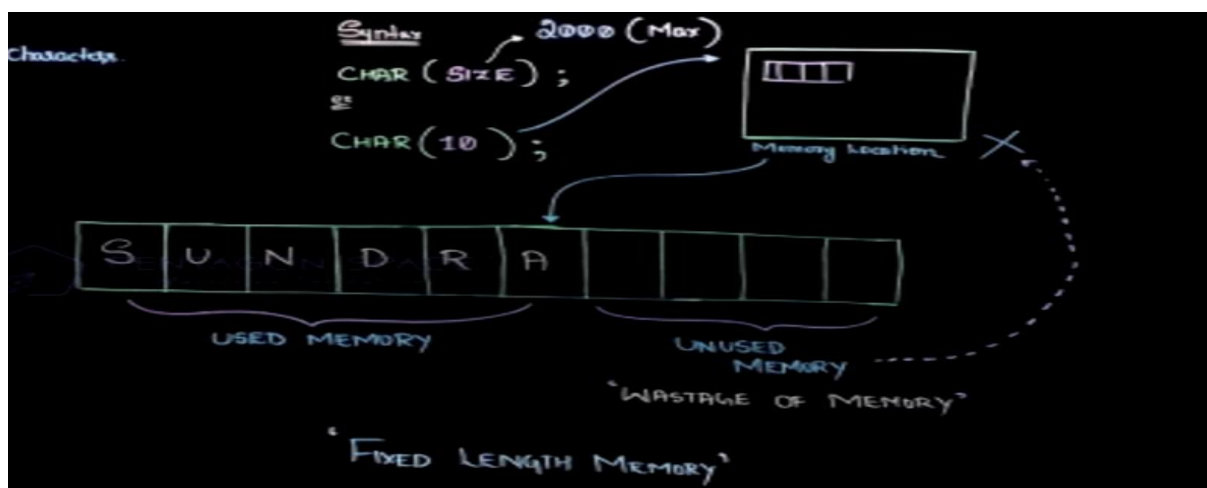 Syntax
2000 (Max)
Characters.
CHAR (SIZE) ;
CHAR (10) ;
Memory Location
S U N D R A
USED MEMORY
UNUSED
MEMORY
'WASTAGE OF MEMORY'
'FIXED LENGTH MEMORY'